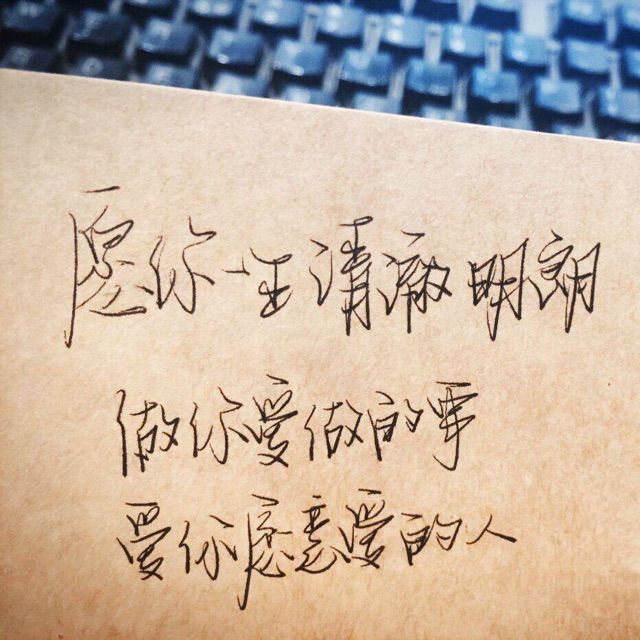 愿你一生清澈明朗
做你爱做的事
爱你愿意爱的人